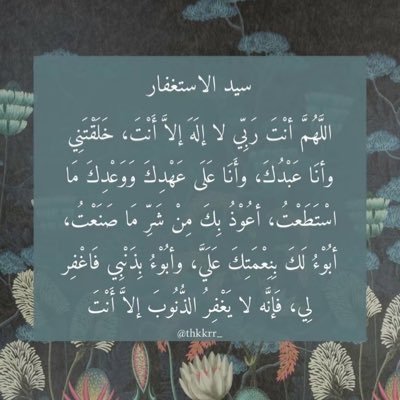 سيد الاستغفار
اللَّهُمَّ أنْتَ رَبِّي لا إلَهَ إلاَّ أَنْتَ، خَلَقْتَنِي
وأنَا عَبْدُكَ، وأَنَا عَلَى عَهْدِكَ وَوَعْدِكَ مَا
اسْتَطَعْتُ، أعُوْذُ بِكَ مِنْ شَرِّ مَا صَنَعْتُ،
أبُوْءُ لَكَ بِنِعْمَتِكَ عَلَيَّ، وأبُوْءُ بِذَنْبِي فَاغْفِر
لِي، فَإنَّه لا يَغْفِرُ الذُّنُوبَ إلاَّ أَنْتَ
@thkkrr_